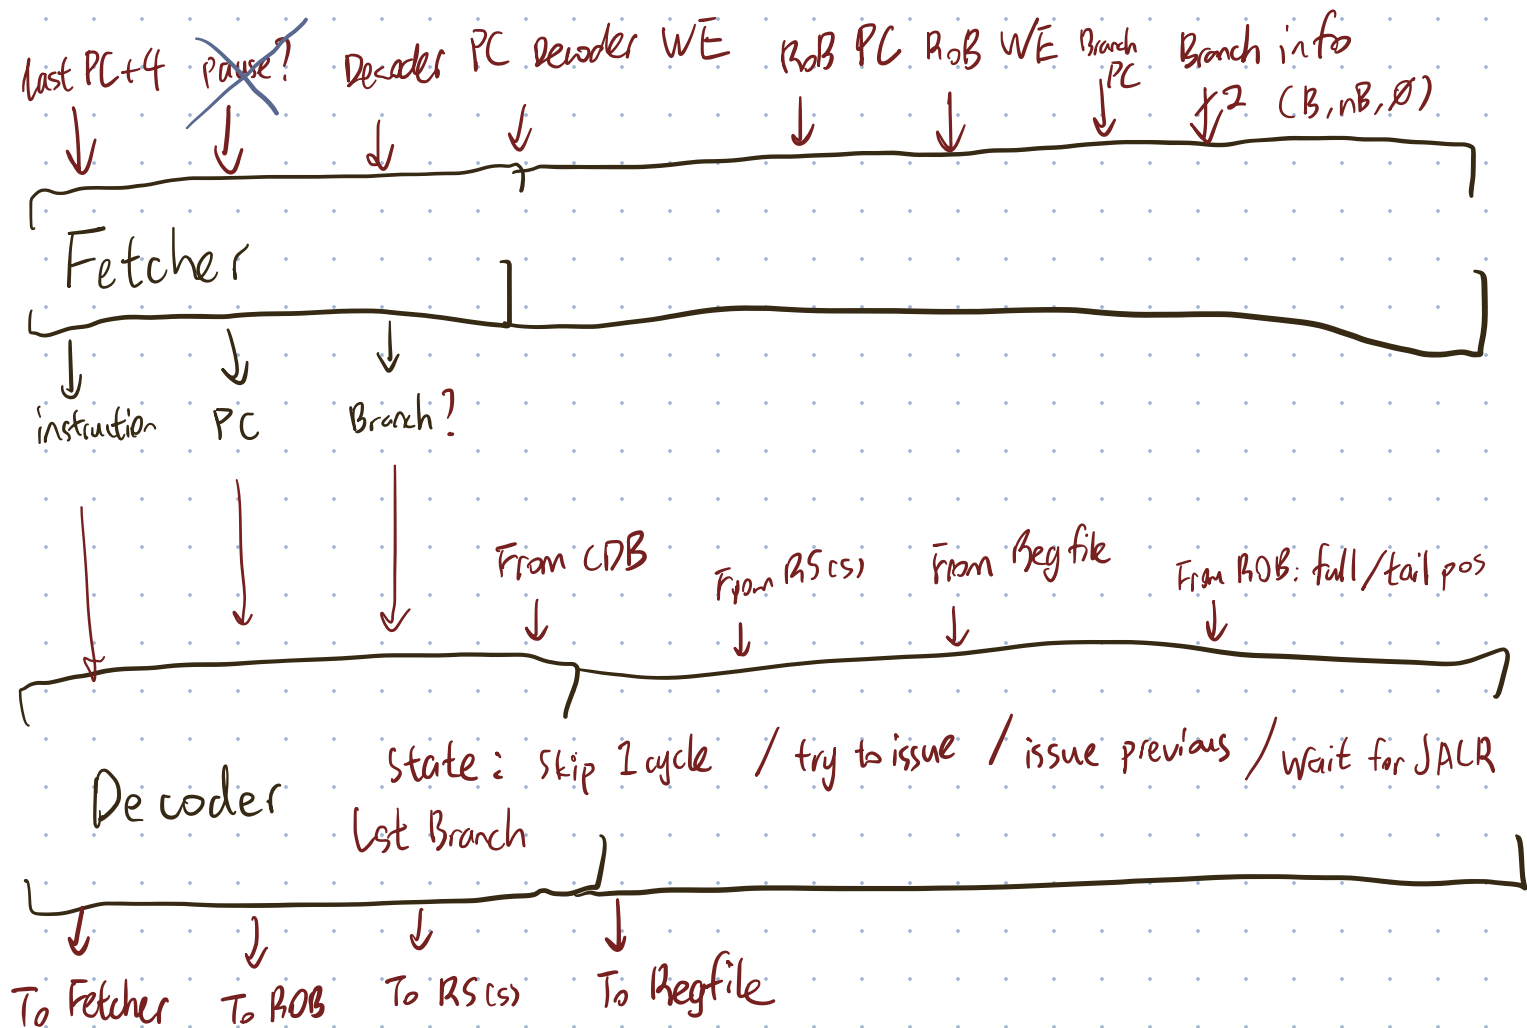 last PC+4 pause? Decoder PC Decoder WE RoB PC RoB WE Branch PC Branch info
×2 (B, nB, Ø)
Fetcher
instruction PC Branch?
From CDB From RS(s) From Regfile From ROB: full/tail pos
State: Skip 1 cycle / try to issue / issue previous / wait for JALR
Decoder
Last Branch
To Fetcher To ROB To RS(s) To Regfile